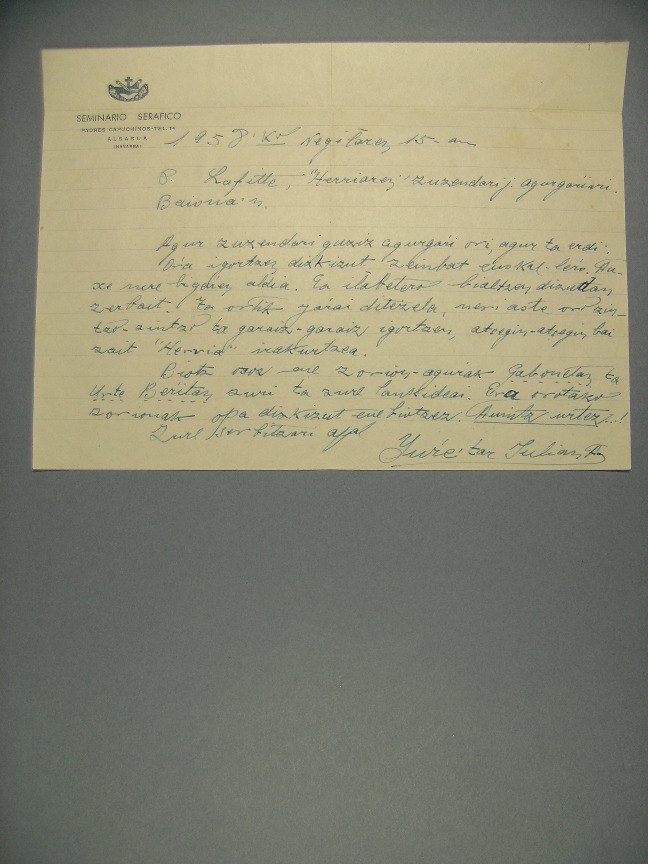 SEMINARIO SERAFICO
PADRES CAPUCHINOS-TEL 14
ALSASUA
(NAVARRA)
1958'ko Negilaren 15-an
P. Lafitte, "Herriaren" zuzendari j. agurgarriari.
Baiona'n.
Agur zuzendari guziz agurgarri ori agur ta erdi:
Ora igortzen dizkizut zeinbat euskal-lerro. Au-
xe nire bigarren aldia. Ia ilabetero bialtzen dizudan
zerbait. Ta ortik jarrai ditezela, neri aste oro zin-
tzo-zintzo ta garaiz-garaiz igortzen, atsegin-atsegin bai
zait "Herria" irakurtzea.
Biotz oroz ene zorion-agurrak Gabonetan ta
Urte Berritan zuri ta zure lankideai. Era orotako
zorionak opa dizkizut ene biotzez. Aunitz urtez..!
Zure serbitzari apal
Yurre'tar Julian